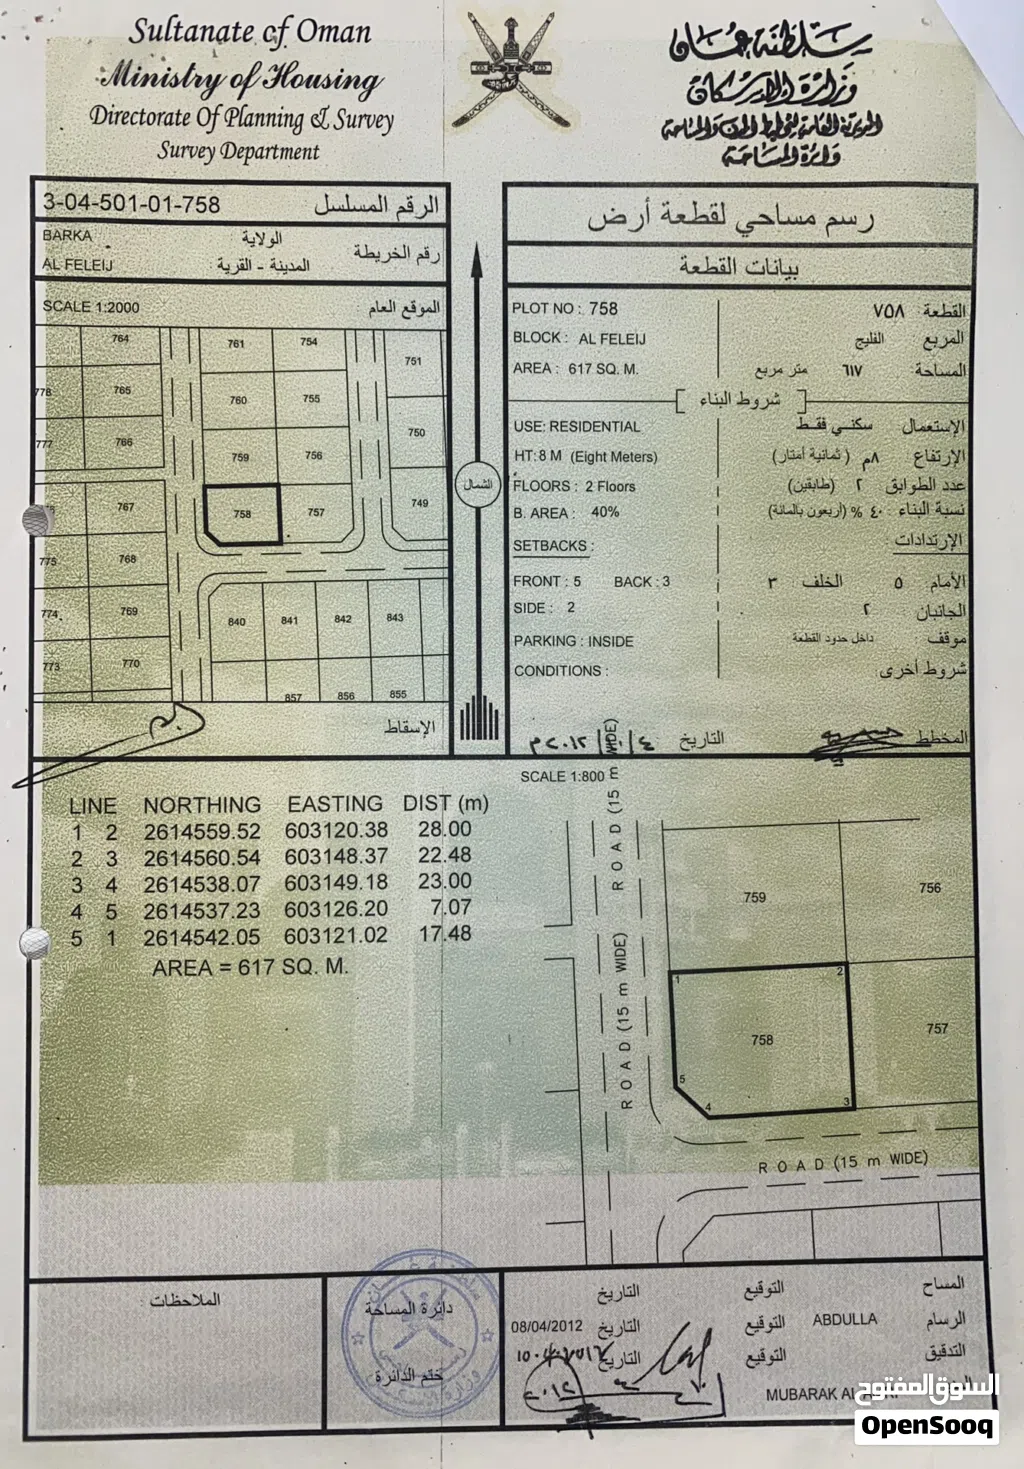 Sultanate of Oman
Ministry of Housing
Directorate Of Planning & Survey
Survey Department
سلطنة عمان
وزارة الإسكان
المديرية العامة للتخطيط والمساحة
دائرة المساحة
3-04-501-01-758 الرقم المسلسل
BARKA الولاية
رقم الخريطة
AL FELEIJ المدينة - القرية
SCALE 1:2000 الموقع العام
764
761
754
751
778
765
760
755
750
777
766
759
756
749
767
758
757
775
768
774
769
840
841
842
843
773
770
857
856
855
الإسقاط
الشمال
رسم مساحي لقطعة أرض
بيانات القطعة
PLOT NO : 758 القطعة ٧٥٨
BLOCK : AL FELEIJ المربع الفليج
AREA : 617 SQ. M. المساحة: ٦١٧ متر مربع
شروط البناء
USE: RESIDENTIAL الإستعمال سكني فقط
HT: 8 M (Eight Meters) الإرتفاع ٨م (ثمانية أمتار)
FLOORS : 2 Floors عدد الطوابق ٢ (طابقين)
B. AREA : 40% نسبة البناء ٤٠ % (أربعون بالمائة)
SETBACKS : الإرتدادات
FRONT : 5 BACK : 3 الأمام ٥ الخلف ٣
SIDE : 2 الجانبان ٢
PARKING : INSIDE موقف: داخل حدود القطعة
CONDITIONS : شروط أخرى
المخطط التاريخ
SCALE 1:800
LINE NORTHING EASTING DIST (m)
1 2 2614559.52 603120.38 28.00
2 3 2614560.54 603148.37 22.48
3 4 2614538.07 603149.18 23.00
4 5 2614537.23 603126.20 7.07
5 1 2614542.05 603121.02 17.48
AREA = 617 SQ. M.
ROAD (15 m WIDE)
ROAD (15 m WIDE)
759
756
1
2
758
757
5
4
3
ROAD (15 m WIDE)
الملاحظات :
دائرة المساحة
ختم الدائرة
المساح التوقيع التاريخ
الرسام ABDULLA التوقيع التاريخ 08/04/2012
التدقيق التوقيع التاريخ
MUBARAK AL
السوق المفتوح
OpenSooq